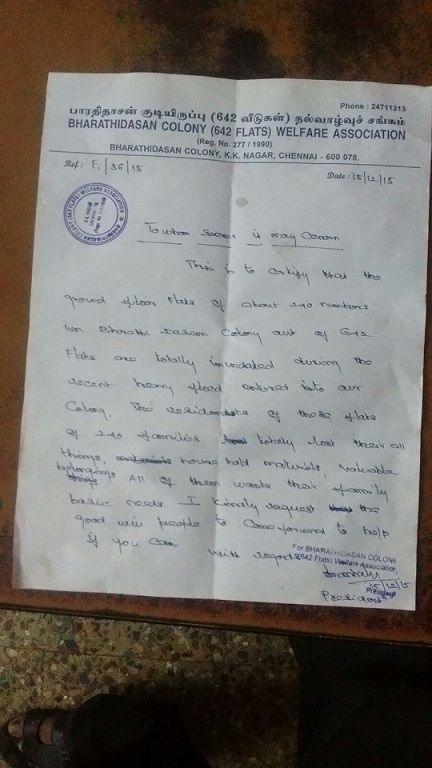 Phone : 24711313
பாரதிதாசன் குடியிருப்பு (642 வீடுகள்) நல்வாழ்வுச் சங்கம்
BHARATHIDASAN COLONY (642 FLATS) WELFARE ASSOCIATION
(Reg. No. 277 / 1990)
BHARATHIDASAN COLONY, K.K. NAGAR, CHENNAI - 600 078.
Ref : F. / 36 / 15
Date : 15/12/15
To whom Soever it may Concern
This is to certify that the
ground floor Flats of about 240 numbers
in Bharathi dasan Colony out of 642
Flats are totally inundated during the
recent heavy flood entered into our
Colony. The residents of these flats
of 240 families totally lost their all
things, house hold materials, valuable
belongings All of them waste their family
basic needs. I kindly request the
good will people to come forward to help
if you can
with regards
For BHARATHIDASAN COLONY
(642 Flats) Welfare Association,
15/12/15
President
President